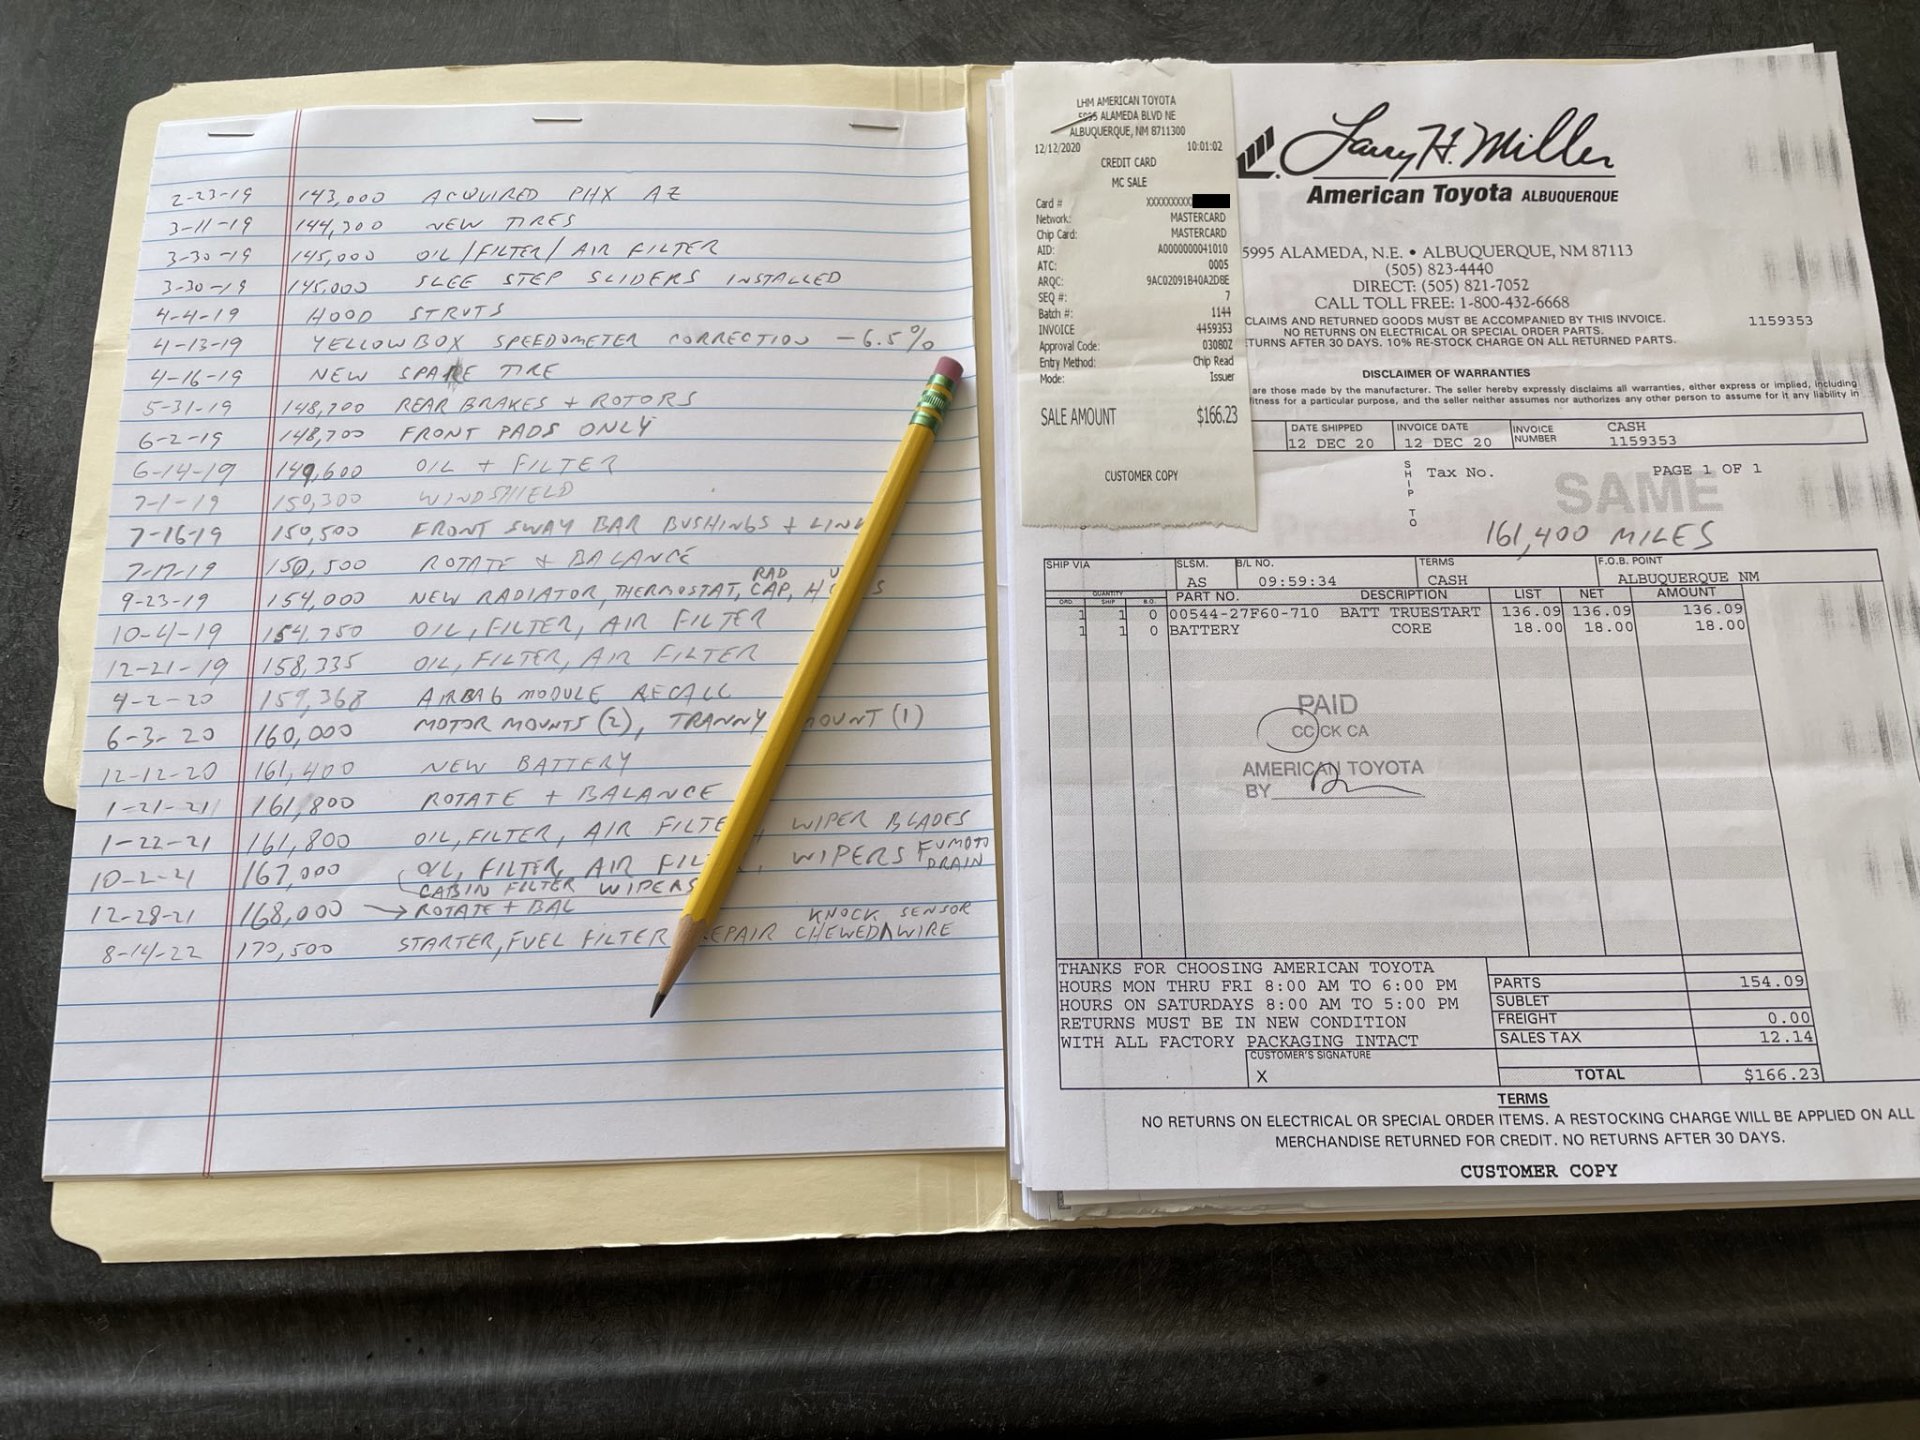 2-23-19 143,000 ACQUIRED PHX AZ
3-11-19 144,300 NEW TIRES
3-30-19 145,000 OIL/FILTER/AIR FILTER
3-30-19 145,000 SLEE STEP SLIDERS INSTALLED
4-4-19 HOOD STRUTS
4-13-19 YELLOWBOX SPEEDOMETER CORRECTION -6.5%
4-16-19 NEW SPARE TIRE
5-31-19 148,700 REAR BRAKES + ROTORS
6-2-19 148,700 FRONT PADS ONLY
6-14-19 149,600 OIL + FILTER
7-1-19 150,300 WINDSHIELD
7-16-19 150,500 FRONT SWAY BAR BUSHINGS +
7-17-19 150,500 ROTATE + BALANCE
9-23-19 154,000 NEW RADIATOR, THERMOSTAT, RAD CAP,
10-4-19 154,750 OIL, FILTER, AIR FILTER
12-21-19 158,335 OIL, FILTER, AIR FILTER
4-2-20 159,368 AIRBAG MODULE RECALL
6-3-20 160,000 MOTOR MOUNTS (2), TRANNY MOUNT (1)
12-12-20 161,400 NEW BATTERY
1-21-21 161,800 ROTATE + BALANCE
1-22-21 161,800 OIL, FILTER, AIR FILTER, WIPER BLADES
10-2-21 167,000 OIL, FILTER, AIR FILTER, WIPERS FUMOTO DRAIN
CABIN FILTER WIPERS
12-28-21 168,000 → ROTATE + BAL
KNOCK SENSOR
8-14-22 170,500 STARTER, FUEL FILTER, REPAIR CHEWED ∧ WIRE
LHM AMERICAN TOYOTA
5995 ALAMEDA BLVD NE
ALBUQUERQUE, NM 8711300
12/12/2020 10:01:02
CREDIT CARD
MC SALE
Card # XXXXXXXXX
Network: MASTERCARD
Chip Card: MASTERCARD
AID: A0000000041010
ATC: 0005
ARQC: 9AC02091B40A2D8E
SEQ #: 7
Batch #: 1144
INVOICE 4459353
Approval Code: 03080Z
Entry Method: Chip Read
Mode: Issuer
SALE AMOUNT $166.23
CUSTOMER COPY
Larry H. Miller
American Toyota ALBUQUERQUE
5995 ALAMEDA, N.E. • ALBUQUERQUE, NM 87113
(505) 823-4440
DIRECT: (505) 821-7052
CALL TOLL FREE: 1-800-432-6668
CLAIMS AND RETURNED GOODS MUST BE ACCOMPANIED BY THIS INVOICE. 1159353
NO RETURNS ON ELECTRICAL OR SPECIAL ORDER PARTS.
TURNS AFTER 30 DAYS. 10% RE-STOCK CHARGE ON ALL RETURNED PARTS.
DISCLAIMER OF WARRANTIES
are those made by the manufacturer. The seller hereby expressly disclaims all warranties, either express or implied, including
itness for a particular purpose, and the seller neither assumes nor authorizes any other person to assume for it any liability in
DATE SHIPPED INVOICE DATE INVOICE NUMBER CASH
12 DEC 20 12 DEC 20 1159353
SHIP TO Tax No. PAGE 1 OF 1
SAME
161,400 MILES
SHIP VIA SLSM. B/L NO. TERMS F.O.B. POINT
AS 09:59:34 CASH ALBUQUERQUE NM
QUANTITY
ORD. SHIP B.O. PART NO. DESCRIPTION LIST NET AMOUNT
1 1 0 00544-27F60-710 BATT TRUESTART 136.09 136.09 136.09
1 1 0 BATTERY CORE 18.00 18.00 18.00
PAID
CC CK CA
AMERICAN TOYOTA
BY
THANKS FOR CHOOSING AMERICAN TOYOTA
HOURS MON THRU FRI 8:00 AM TO 6:00 PM
HOURS ON SATURDAYS 8:00 AM TO 5:00 PM
RETURNS MUST BE IN NEW CONDITION
WITH ALL FACTORY PACKAGING INTACT
CUSTOMER'S SIGNATURE
X
PARTS 154.09
SUBLET
FREIGHT 0.00
SALES TAX 12.14
TOTAL $166.23
TERMS
NO RETURNS ON ELECTRICAL OR SPECIAL ORDER ITEMS. A RESTOCKING CHARGE WILL BE APPLIED ON ALL
MERCHANDISE RETURNED FOR CREDIT. NO RETURNS AFTER 30 DAYS.
CUSTOMER COPY